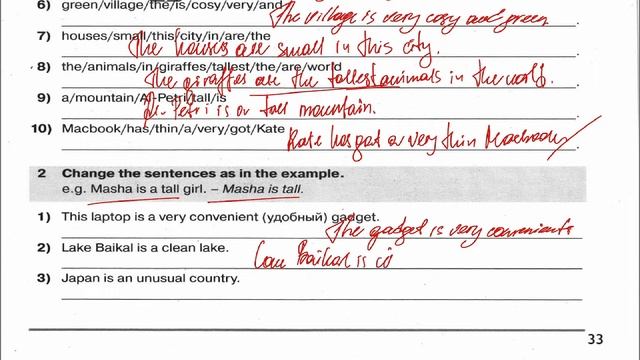 6) green/village/the/is/cosy/very/and
The village is very cosy and green.
7) houses/small/this/city/in/are/the
The houses are small in this city.
8) the/animals/in/giraffes/tallest/the/are/world
The giraffes are the tallest animals in the world.
9) a/mountain/Ai-Petri/tall/is
Ai-Petri is a tall mountain.
10) Macbook/has/thin/a/very/got/Kate
Kate has got a very thin Macbook
2 Change the sentences as in the example.
e.g. Masha is a tall girl. – Masha is tall.
1) This laptop is a very convenient (удобный) gadget.
The gadget is very convenient
2) Lake Baikal is a clean lake.
Baikal is
3) Japan is an unusual country.
33